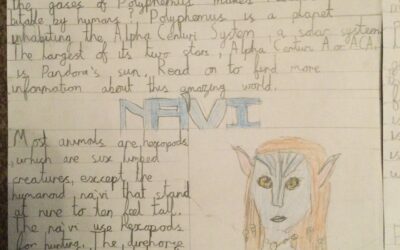 the gases of Polyphemus makes
bitable by humans? Polyphomus is a planet
inhabiting the Alpha Centuri System, a solar system
The largest of its two stars, Alpha Centuri A or "ACA,
is Pandora's sun. Read on to find more
information about this amazing world.
NAVI
Most animals are hexopods
, which are six limbed
creatures, except the
humanoid na'vi that stand
at nine to ten feet tall.
The na'vi use hexopods
for hunting. The direhorse